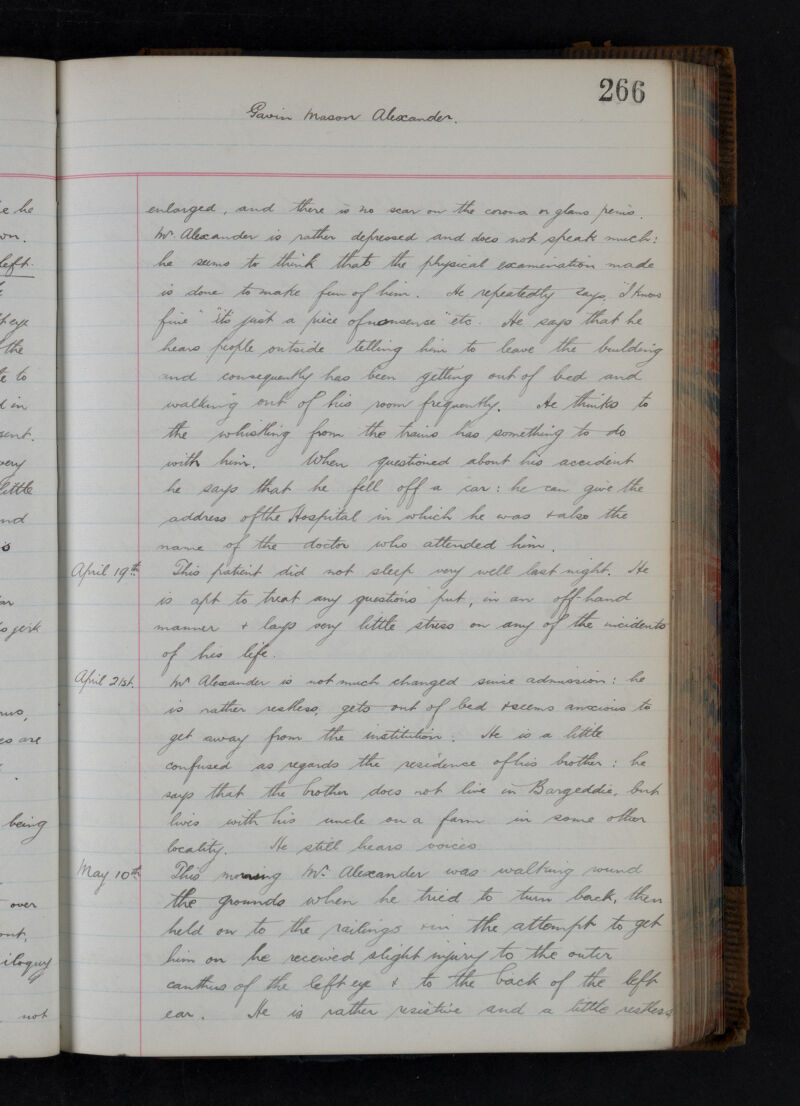 266
Gavin Mason Alexander.
enlarged, and there is no scar on the corona or glans penis.
Mr. Alexander is rather depressed and does not speak much:
he seems to think that the physical examination made
is done to make fun of him. He repeatedly says, "I know
fine" "its just a piece of nonsense" etc. He says that he
hears people outside telling him to leave the building
and consequently has been getting out of bed and
walking out of his room frequently. He thinks to
the whistling from the trains has something to do
with him. When questioned about his accident
he says that he fell off a car: he can give the
address of the Hospital in which he was + also the
name of the doctor who attended him.
April 19th This patient did not sleep very well last night. He
is apt to treat any questions put, in an off-hand
manner + lays very little stress on any of the incidents
of his life.
April 21st. Mr Alexander is not much changed since admission: he
is rather restless, gets out of bed + seems anxious to
get away from the institution. He is a little
confused as regards the residence of his brother: he
says that the brother does not live in Bargeddie, but
lives with his uncle on a farm in some other
locality. He still hears voices
May 10th This morning Mr. Alexander was walking round
the grounds when he tried to turn back, then
held on to the railings + in the attempt to get
him on he received slight injury to the outer
canthus of the left eye + to the back of the left
ear. He is rather resistive and a little restless